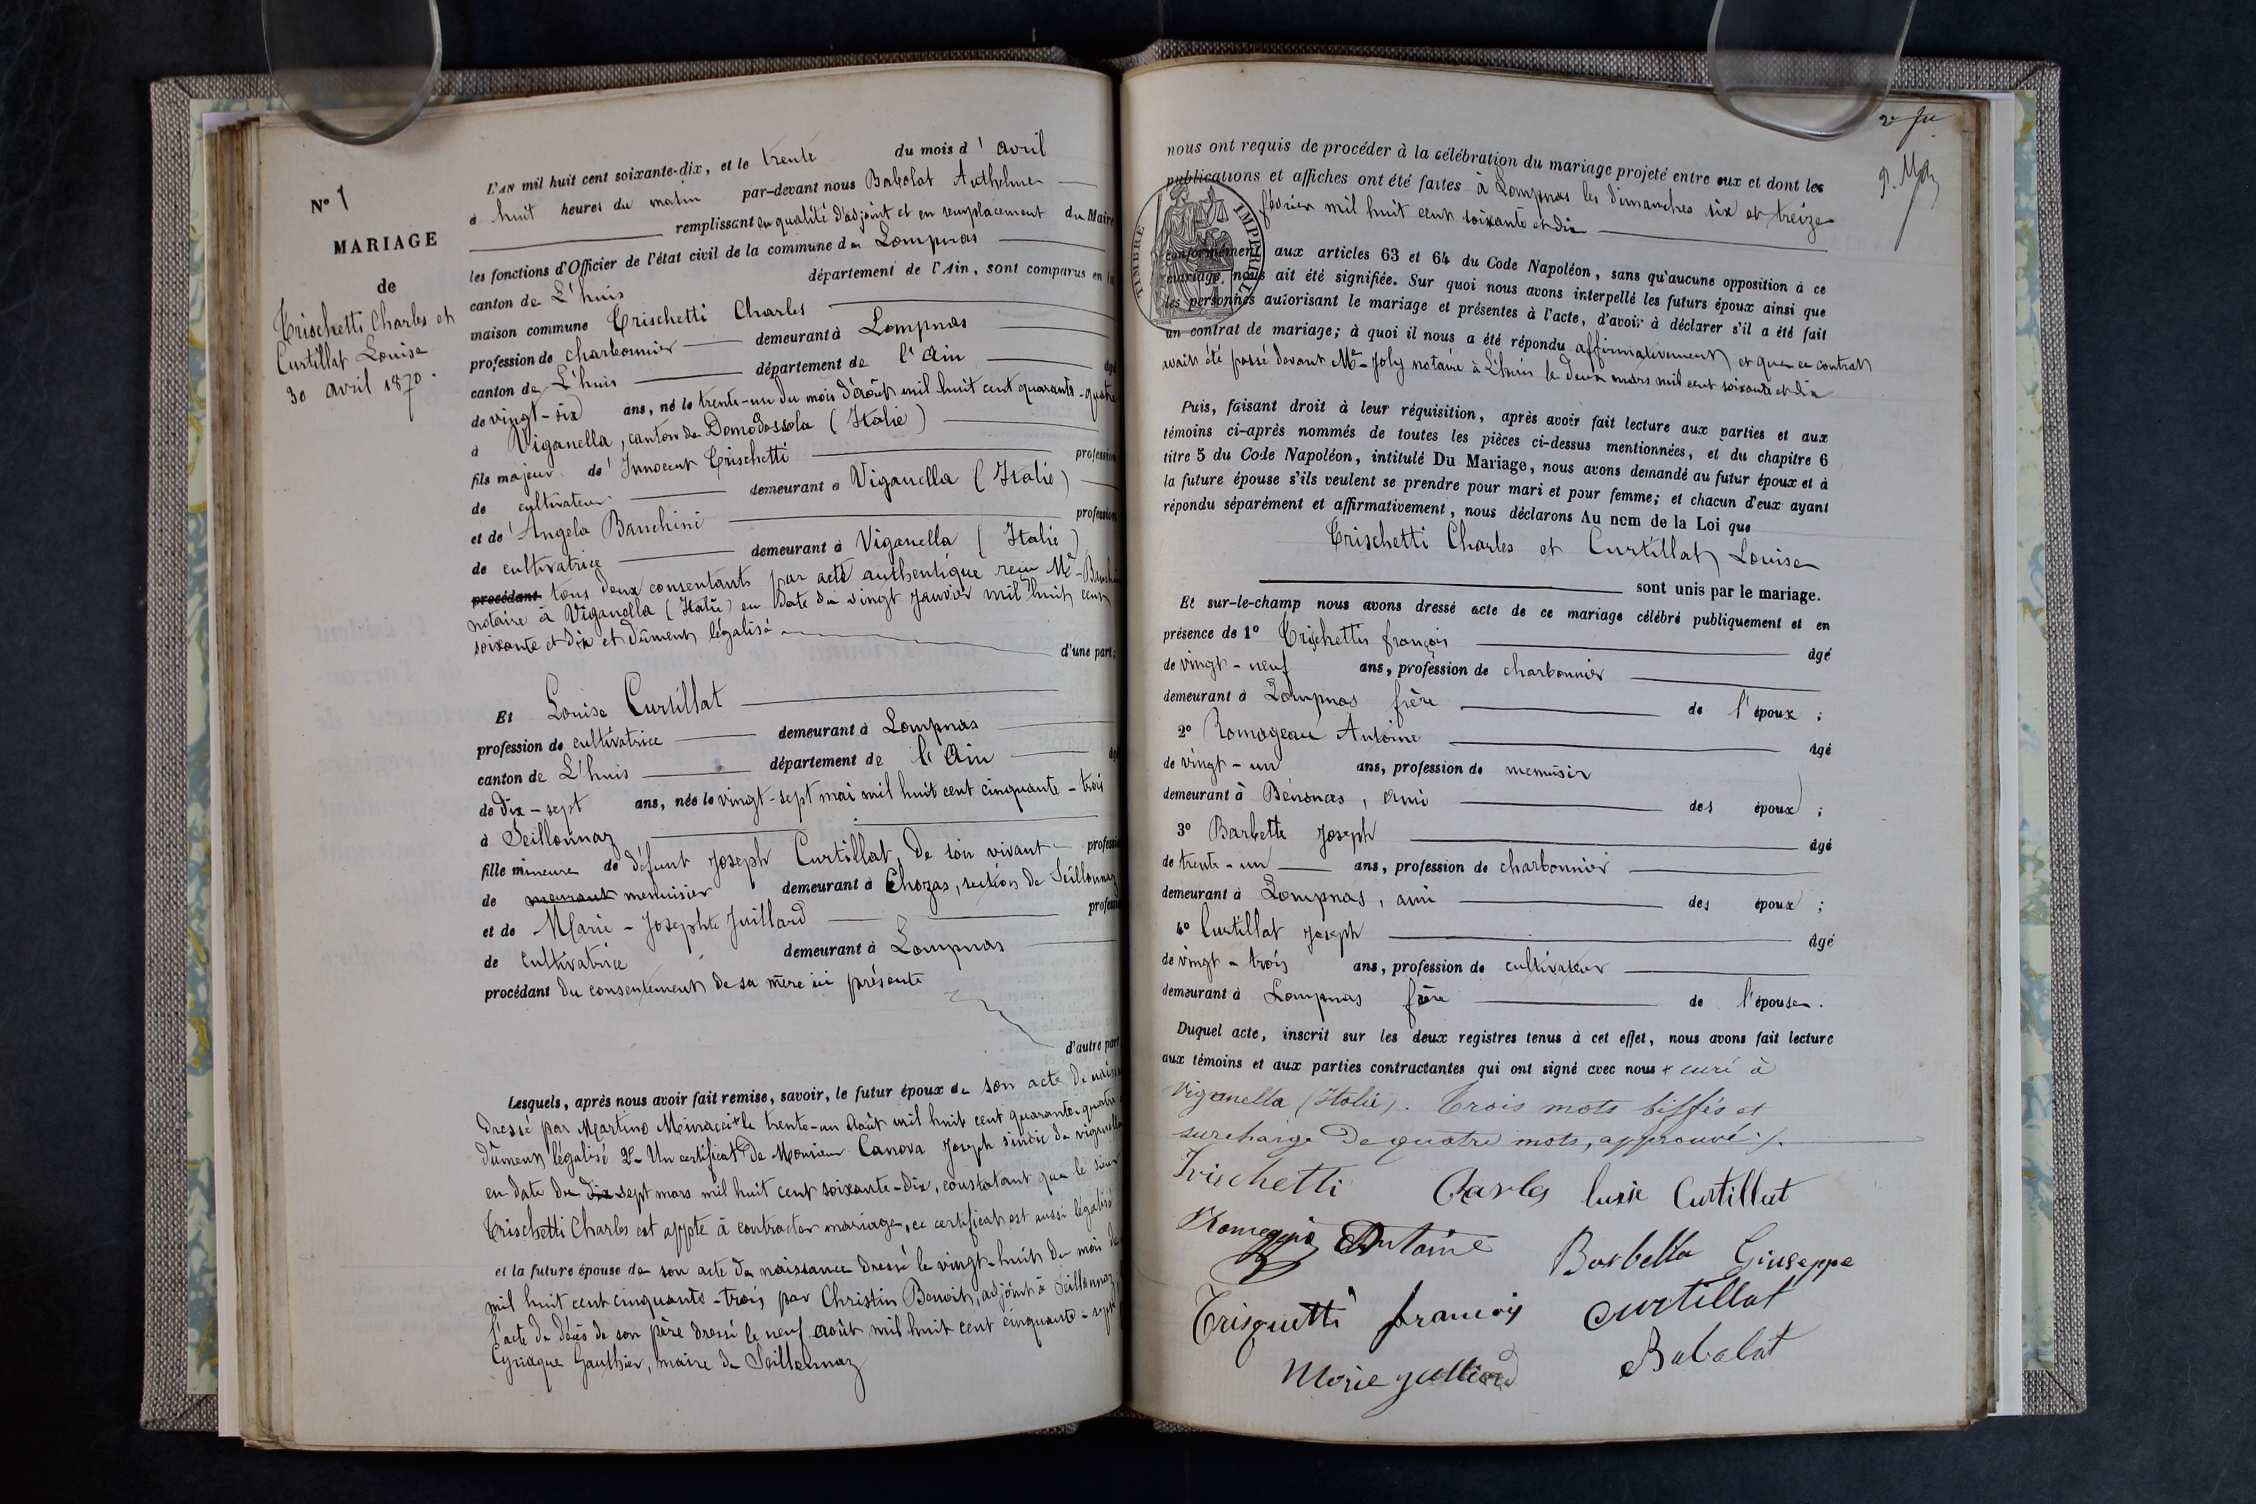 N° 1
MARIAGE
de
Trischetti Charles et
Curtillat Louise
30 avril 1870.
L'AN mil huit cent soixante-dix, et le trente du mois d'avril
à huit heures du matin par-devant nous Babolat Anthelme
remplissant en qualité d'adjoint et en remplacement du Maire
les fonctions d'Officier de l'état civil de la commune de Lompnas
canton de L'huis département de l'Ain, sont comparus en la
maison commune Trischetti Charles
profession de charbonnier demeurant à Lompnas
canton de L'huis département de l'Ain âgé
de vingt-six ans, né le trente-un du mois d'août mil huit cent quarante-quatre
à Viganella, canton de Domodossola (Italie)
fils majeur de Innocent Trischetti profession
de cultivateur demeurant à Viganella (Italie)
et de Angela Banchini profession
de cultivatrice demeurant à Viganella (Italie)
procédant tous deux consentants par acte authentique reçu Me
notaire à Viganella (Italie) en date du vingt janvier mil huit cent
soixante et dix et dûment légalisé
d'une part;
Et Louise Curtillat
profession de cultivatrice demeurant à Lompnas
canton de L'huis département de l'Ain âgé
de dix-sept ans, née le vingt-sept mai mil huit cent cinquante-trois
à Seillonnaz
fille mineure de défunt Joseph Curtillat, de son vivant profession
de menuisier demeurant à Chozas, section de Seillonnaz
et de Marie-Josephte Juillard profession
de cultivatrice demeurant à Lompnas
procédant du consentement de sa mère ici présente
d'autre part
Lesquels, après nous avoir fait remise, savoir, le futur époux de son acte de naissance
dressé par Martino le trente-un août mil huit cent quarante-quatre
dûment légalisé 2° Un certificat de Monsieur Canova Joseph sindic de viganella
en date du dix sept mars mil huit cent soixante-dix, constatant que le sieur
Trischetti Charles est appte à contracter mariage, ce certificat est aussi légalisé
et la future épouse de son acte de naissance dressé le vingt-huit du mois de
mil huit cent cinquante-trois, par Christin Benoit, adjoint à Seillonnaz,
l'acte de décès de son père dressé le neuf août mil huit cent cinquante-sept
Cyriaque Gauthier, maire de Seillonnaz
nous ont requis de procéder à la célébration du mariage projeté entre eux et dont les
publications et affiches ont été faites à Lompnas les dimanches six et treize
février mil huit cent soixante et dix
TIMBRE IMPERIAL
conformément aux articles 63 et 64 du Code Napoléon, sans qu'aucune opposition à ce
mariage nous ait été signifiée. Sur quoi nous avons interpellé les futurs époux ainsi que
les personnes autorisant le mariage et présentes à l'acte, d'avoir à déclarer s'il a été fait
un contrat de mariage; à quoi il nous a été répondu affirmativement et que ce contrat
avait été passé devant Me Joly notaire à L'huis le deux mars mil cent soixante et dix
Puis, faisant droit à leur réquisition, après avoir fait lecture aux parties et aux
témoins ci-après nommés de toutes les pièces ci-dessus mentionnées, et du chapitre 6
titre 5 du Code Napoléon, intitulé Du Mariage, nous avons demandé au futur époux et à
la future épouse s'ils veulent se prendre pour mari et pour femme; et chacun d'eux ayant
répondu séparément et affirmativement, nous déclarons Au nom de la Loi que
Trischetti Charles et Curtillat Louise
sont unis par le mariage.
Et sur-le-champ nous avons dressé acte de ce mariage célébré publiquement et en
présence de 1° Trischettis françois âgé
de vingt-neuf ans, profession de charbonnier
demeurant à Lompnas frère de l'époux;
2° Romageau Antoine âgé
de vingt-un ans, profession de menuisier
demeurant à Bénonas, ami des époux;
3° Barbette Joseph âgé
de trente-un ans, profession de charbonnier
demeurant à Lompnas, ami des époux;
4° Curtillat Joseph âgé
de vingt-trois ans, profession de cultivateur
demeurant à Lompnas frère de l'épouse.
Duquel acte, inscrit sur les deux registres tenus à cet effet, nous avons fait lecture
aux témoins et aux parties contractantes qui ont signé avec nous + curé à
Viganella (Italie). Trois mots biffés et
surcharge de quatre mots, approuvé ./.
Trischetti Carles luise Curtillat
Antoine Barbetta Giuseppe
Trisquetti francois Curtillat
Marie Babolat